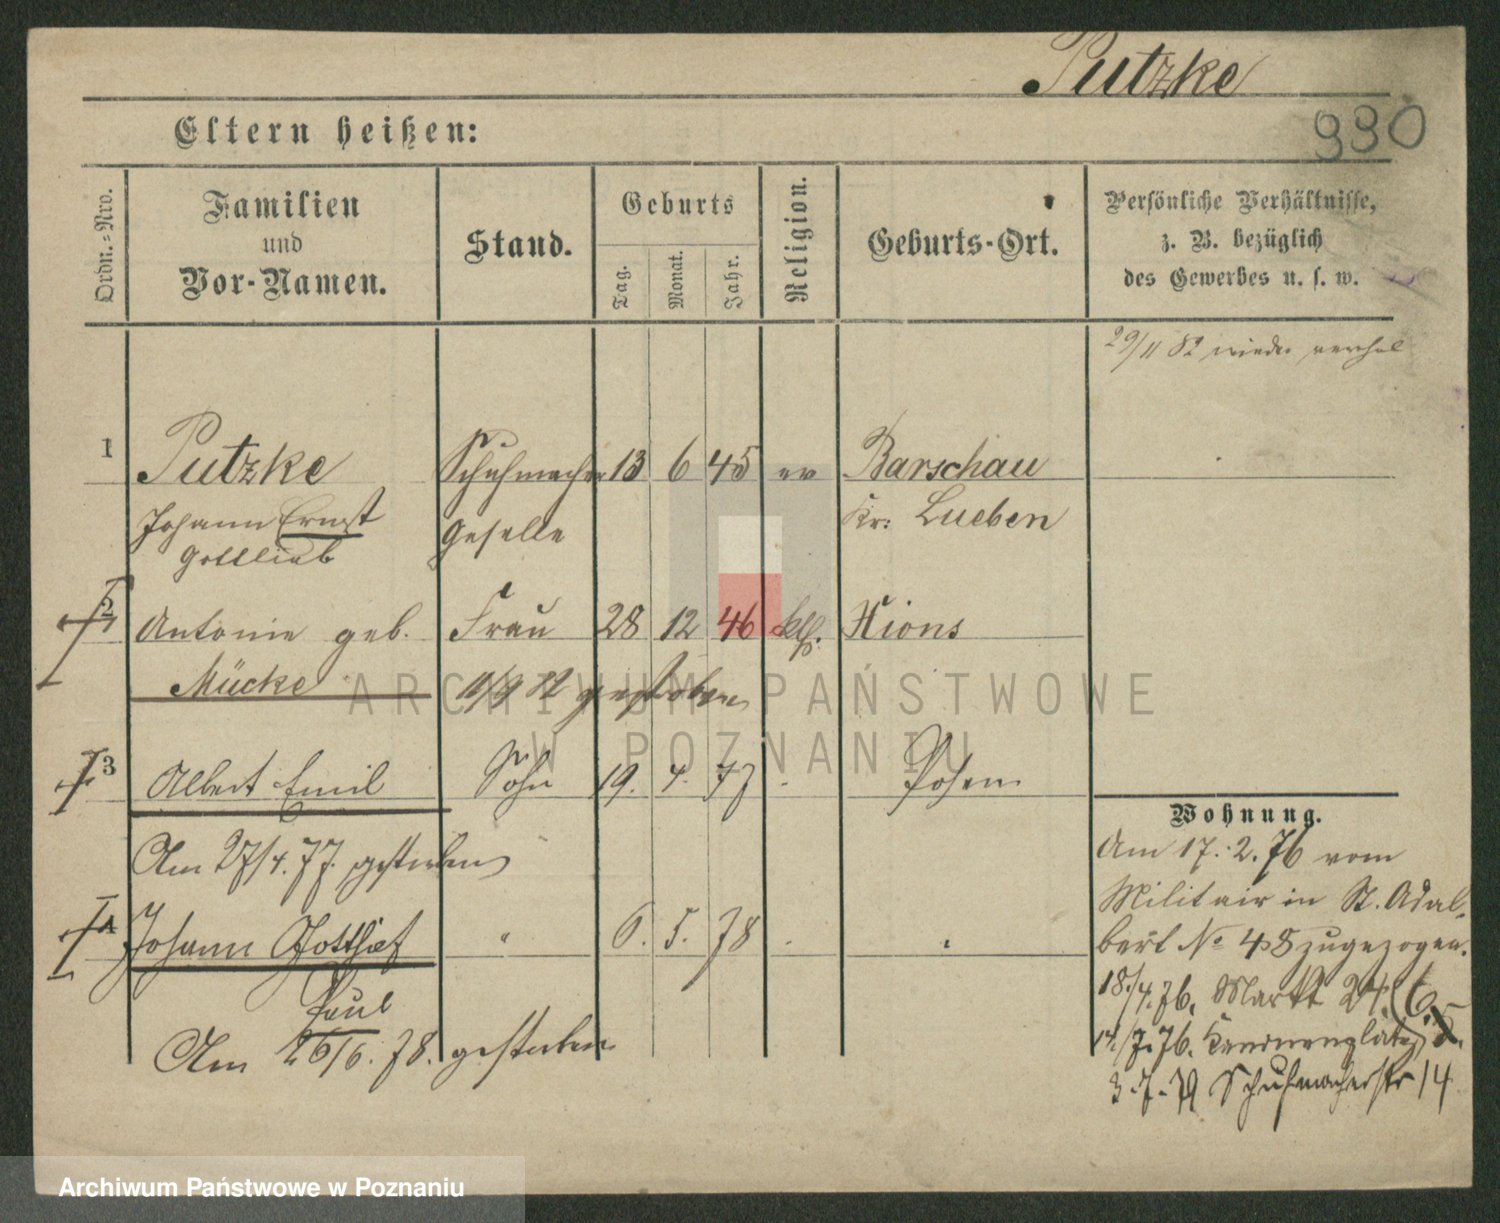 Putzke
990
Eltern heißen:
Ordn.=Nro.
Familien
und
Vor-Namen.
Stand.
Geburts
Tag.
Monat.
Jahr.
Religion.
Geburts-Ort.
Persönliche Verhältnisse,
z. B. bezüglich
des Gewerbes u. s. w.
29/11 82 wieder
1 Putzke Schuhmacher 13 6 45 ev Barschau
Johann Ernst Geselle Kr: Lueben
Gottlieb
2 Antonie geb. Frau 28 12 46 kth. Xions
Mücke gestorben
3 Albert Emil Sohn 19. 4. 77 Posen
Am 27/4. 77. gestorben
4 Johann Gotthilf " 6. 5. 78
Paul
Am 26/6. 78. gestorben
Wohnung.
Am 17. 2. 76 vom
Militair in St. Adal-
bert No 48 zugezogen.
18/4. 76. Markt 24.
14/7. 76.
3.7.79 Schuhmacherstr 14
ARCHIWUM PAŃSTWOWE
W POZNANIU
Archiwum Państwowe w Poznaniu